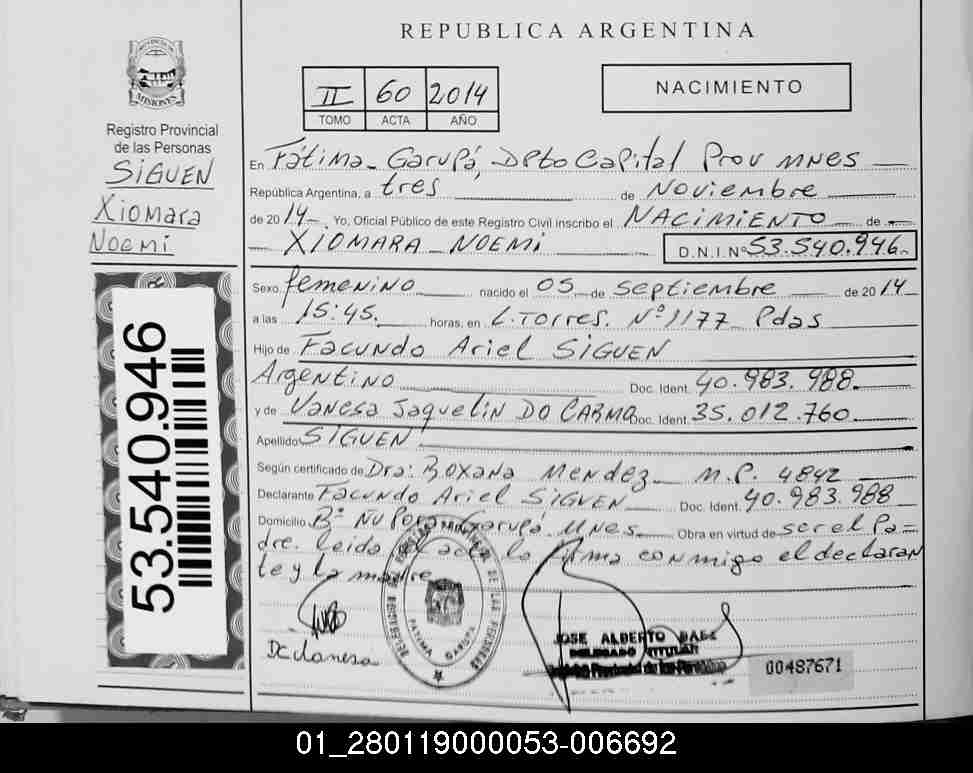 REPUBLICA ARGENTINA
PROVINCIA DE
MISIONES
Registro Provincial
de las Personas
SiGUEN
Xiomara
Noemi
53.540.946
II 60 2014
TOMO ACTA AÑO
NACIMIENTO
En Fátima - Garupá, Dpto Capital Prov MNES
República Argentina, a tres de Noviembre
de 2014 Yo, Oficial Público de este Registro Civil inscribo el NACIMIENTO de
XIOMARA NOEMi D.N.I.Nº 53.540.946
Sexo femenino nacido el 05 de septiembre de 2014
a las 15:45. horas, en L. Torres. Nº 1177 Pdas
Hijo de Facundo Ariel SIGUEN
Argentino Doc. Ident. 40.983.988.
y de Vanesa Jaquelin DO CARMO Doc. Ident. 35.012.760
Apellido SIGUEN
Según certificado de Dra: Roxana Mendez M.P. 4842
Declarante Facundo Ariel SIGUEN Doc. Ident. 40.983.988
Domicilio Bº Ñu Porá Garupá MNES Obra en virtud de ser el Pa-
dre. leida el acta la firma conmigo el declaran
te y la madre
FATIMA GARUPA
JOSE ALBERTO
DELEGADO TITULAR
Registro Provincial de las Personas
00487671
01_280119000053-006692